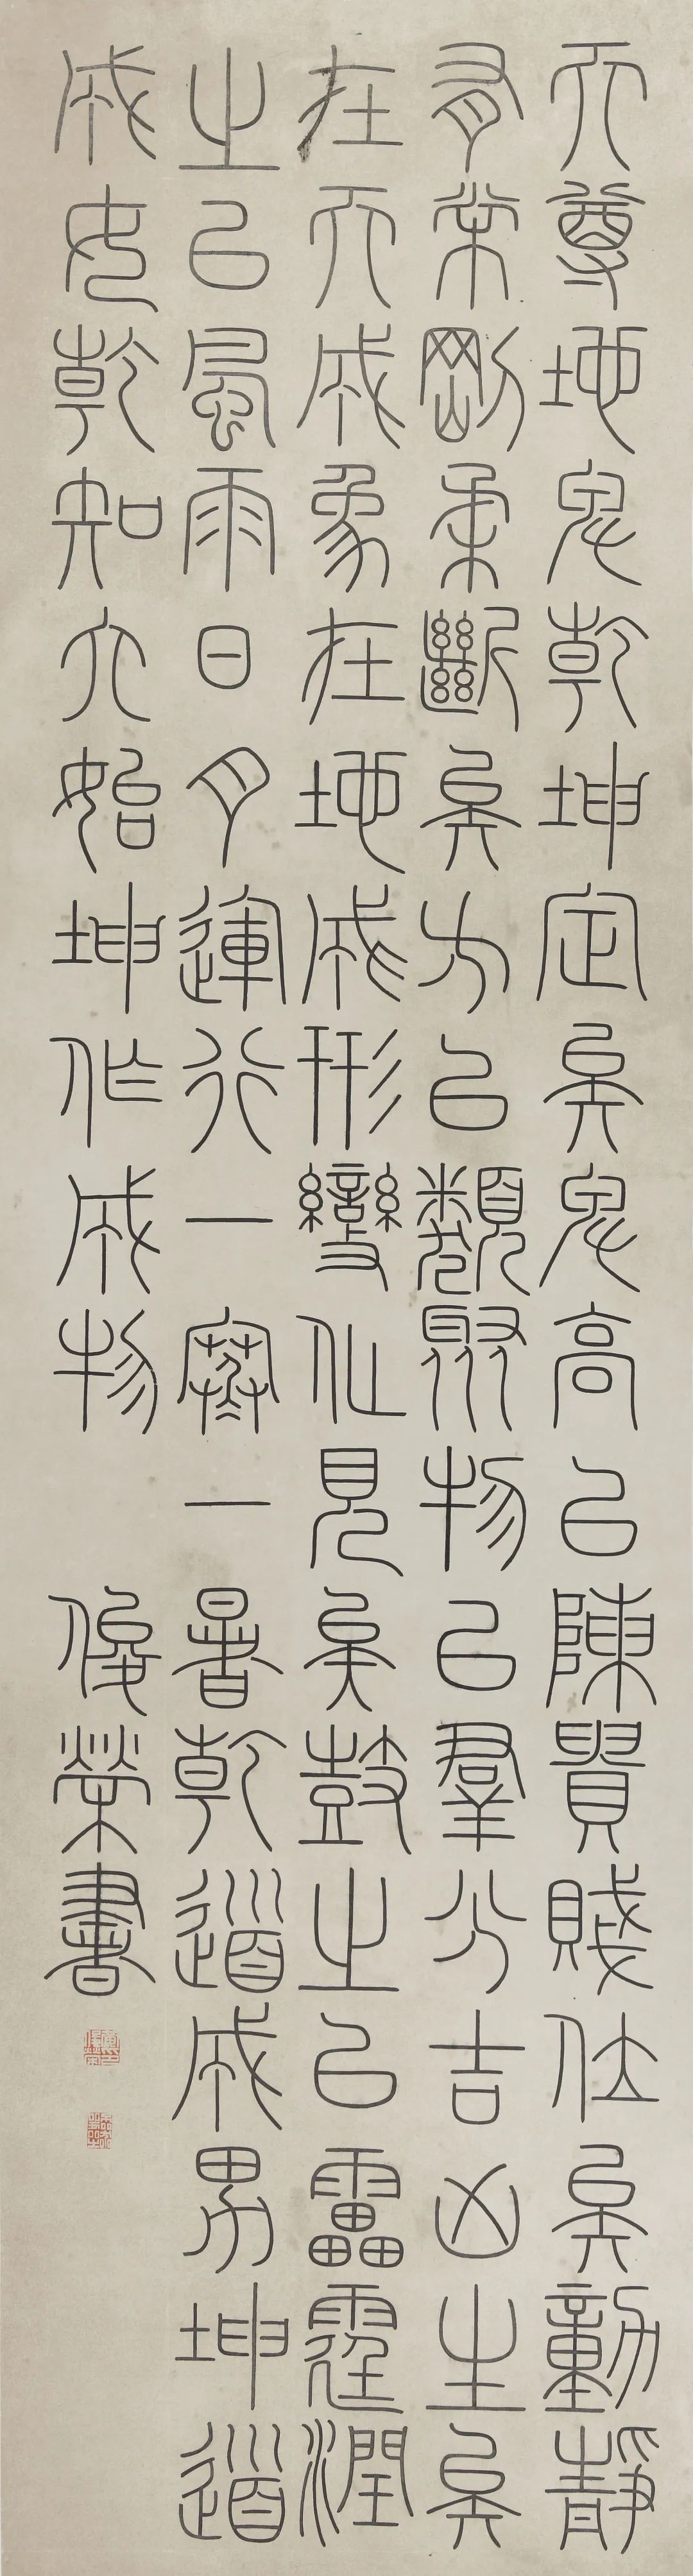 天尊地卑乾坤定矣卑高以陳貴賤位矣動靜
有常剛柔斷矣方以類聚物以羣分吉凶生矣
在天成象在地成形變化見矣鼓之以雷霆潤
之以風雨日月運行一寒一暑乾道成男坤道
成女乾知大始坤作成物 俊榮書